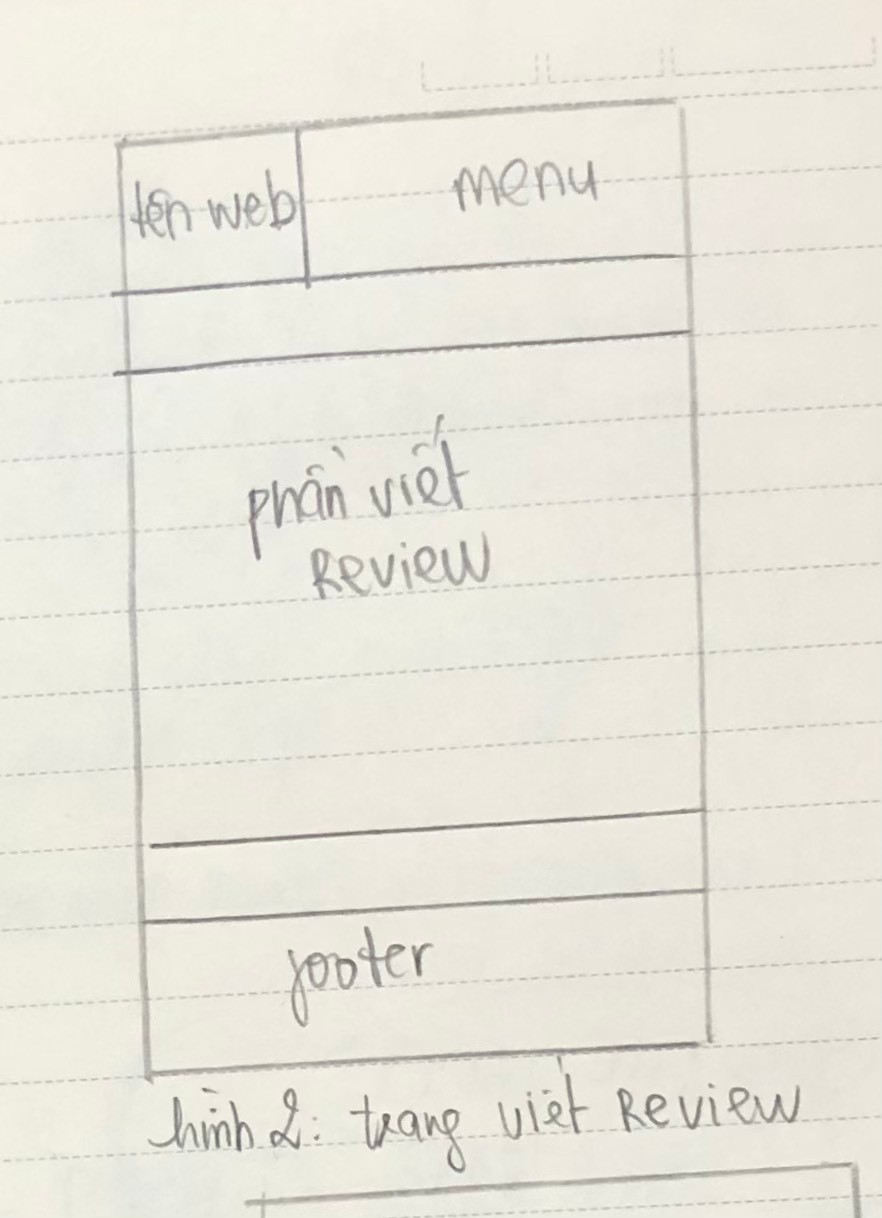 tên web
menu
phần viết
Review
footer
hình 2: trang viết Review